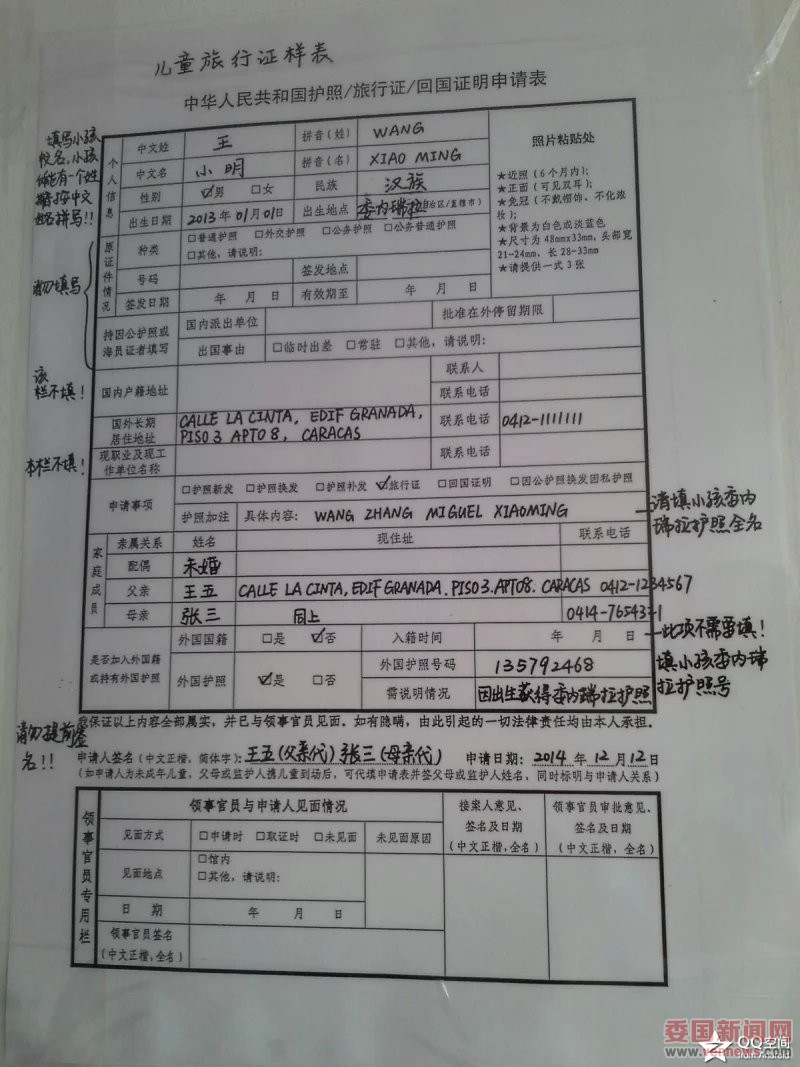 儿童旅行证样表
中华人民共和国护照/旅行证/回国证明申请表
填写小孩
姓名,小孩
只能有一个姓
按中文
姓名拼写!!
个人信息
中文姓 王 拼音(姓) WANG
中文名 小明 拼音(名) XIAO MING
性别 ☑男 □女 民族 汉族
出生日期 2013年01月01日 出生地点 委内瑞拉(自治区/直辖市)
照片粘贴处
★近照(6个月内);
★正面(可见双耳);
★免冠(不戴帽饰、不化浓
妆);
★背景为白色或淡蓝色
★尺寸为48mm×33mm,头部宽
21-24mm,长28-33mm
★请提供一式3张
请勿填写
原证件情况
种类 □普通护照 □外交护照 □公务护照 □公务普通护照
□其他,请说明:
号码 签发地点
签发日期 年 月 日 有效期至 年 月 日
持因公护照或
海员证者填写
国内派出单位 批准在外停留期限
出国事由 □临时出差 □常驻 □其他,请说明:
该
栏不填!
国内户籍地址 联系人
联系电话
国外长期
居住地址
CALLE LA CINTA, EDIF GRANADA,
PISO 3 APTO 8, CARACAS
联系电话 0412-1111111
本栏不填!
现职业及现工
作单位名称
联系电话
申请事项 □护照新发 □护照换发 □护照补发 ☑旅行证 □回国证明 □因公护照换发因私护照
护照加注 具体内容: WANG ZHANG MIGUEL XIAOMING
请填小孩委内
瑞拉护照全名
家庭成员
亲属关系 姓名 现住址 联系电话
配偶 未婚
父亲 王五 CALLE LA CINTA, EDIF GRANADA. PISO 3. APTO8. CARACAS 0412-1234567
母亲 张三 同上 0414-7654321
是否加入外国籍
或持有外国护照
外国国籍 □是 ☑否 入籍时间 年 月 日
此项不需要填!
外国护照 ☑是 □否 外国护照号码 135792468
填小孩委内瑞
拉护照号
需说明情况 因出生获得委内瑞拉护照
我保证以上内容全部属实,并已与领事官员见面。如有隐瞒,由此引起的一切法律责任均由本人承担。
请勿提前签
名!!
申请人签名(中文正楷,简体字):王五(父亲代)张三(母亲代) 申请日期:2014年12月12日
(如申请人为未成年儿童,父母或监护人携儿童到场后,可代填申请表并签父母或监护人姓名,同时标明与申请人关系)
领事官员专用栏
领事官员与申请人见面情况
接案人意见、
签名及日期
(中文正楷,全名)
领事官员审批意见、
签名及日期
(中文正楷,全名)
见面方式 □申请时 □取证时 □未见面 未见面原因
见面地点 □馆内
□其他,请说明:
日 期 年 月 日
领事官员签名
(中文正楷,全名)
委国新闻网
www.venews.com
QQ空间
from Android